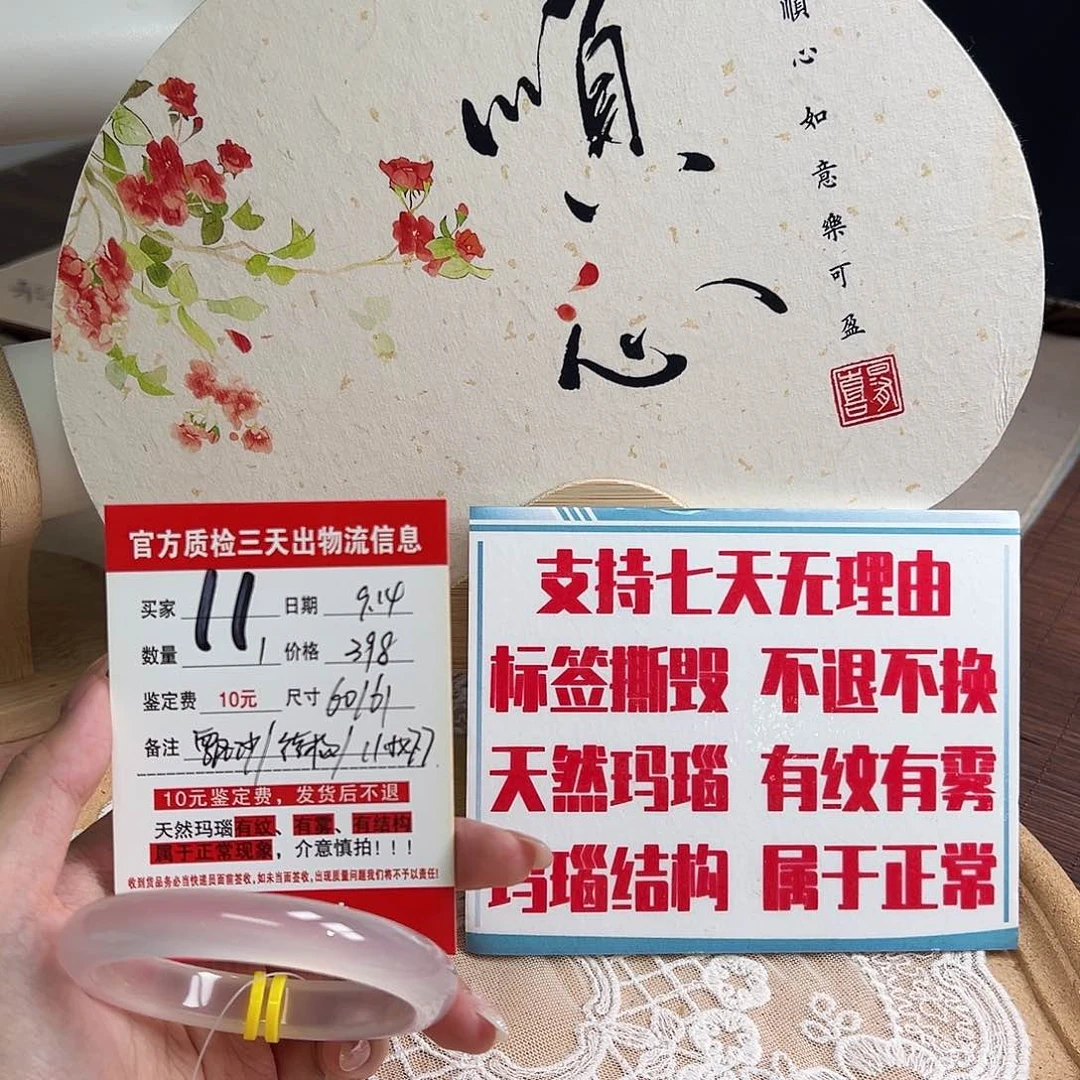 順心
順心如意樂可盈
官方质检三天出物流信息
买家 11 日期 9.14
数量 1 价格 398
鉴定费 10元 尺寸 60/61
备注
10元鉴定费，发货后不退
天然玛瑙有纹、有雾、有结构
属于正常现象，介意慎拍！！！
收到货品务必当快递员面前签收，如未当面签收，出现质量问题我们将不予以责任！
支持七天无理由
标签撕毁 不退不换
天然玛瑙 有纹有雾
玛瑙结构 属于正常